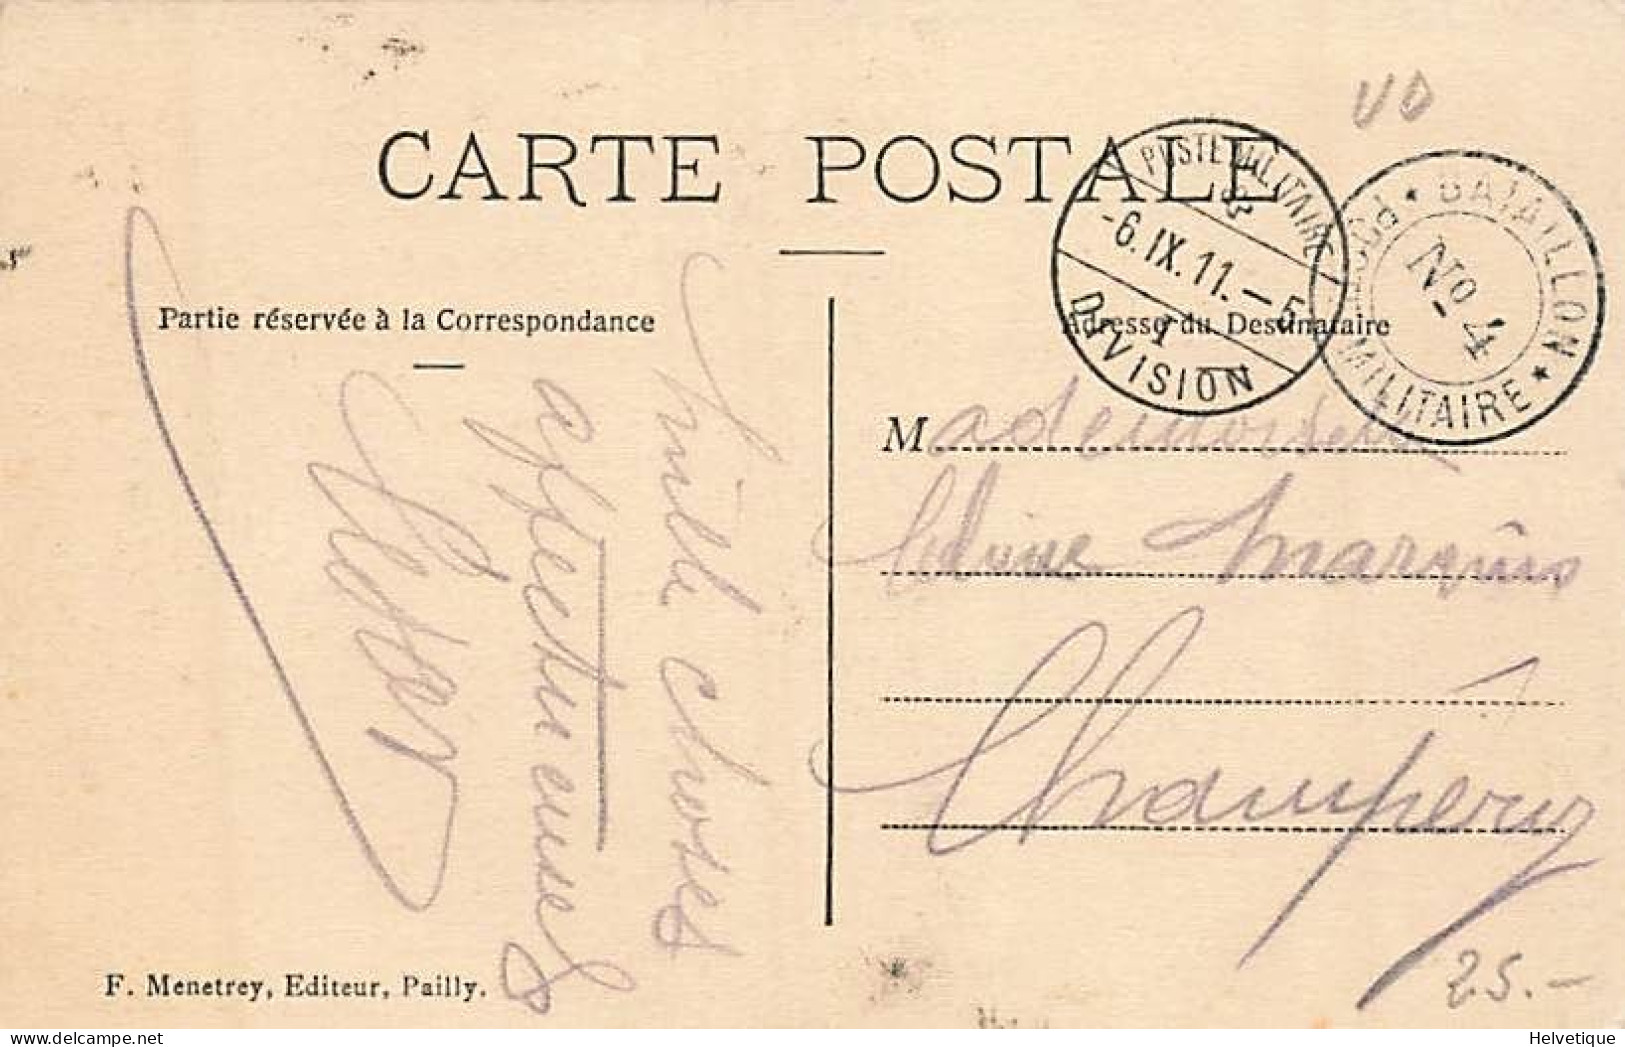 VD
CARTE POSTALE
POSTE MILITAIRE
-6.IX.11.-5
I
DIVISION
POSTE MILITAIRE * BATAILLON *
No 4
Partie réservée à la Correspondance
Adresse du Destinataire
Mille choses
affectueuses
Mademoiselle
Marquis
Champéry
F. Menetrey, Editeur, Pailly.
25.-
www.delcampe.net
Helvetique